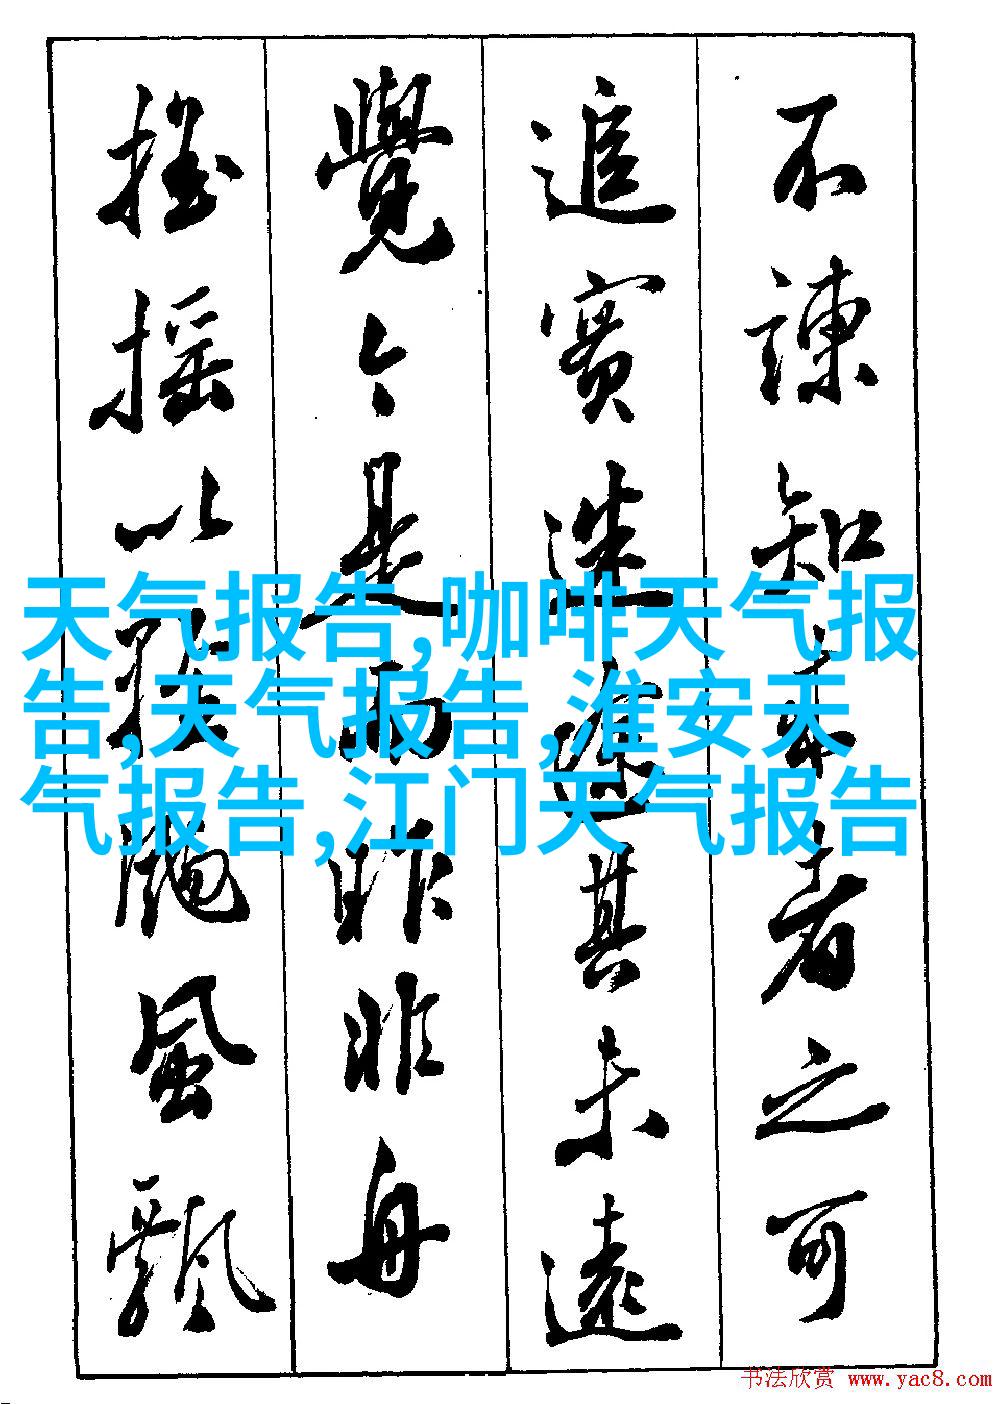 不諫知来者之可
追實迷途其未遠
覺今是而昨非舟
摇摇以輕颺風飄
天气报告,咖啡天气报
告,天气报告,淮安天
气报告,江门天气报告
书法欣赏 www.yac8.com